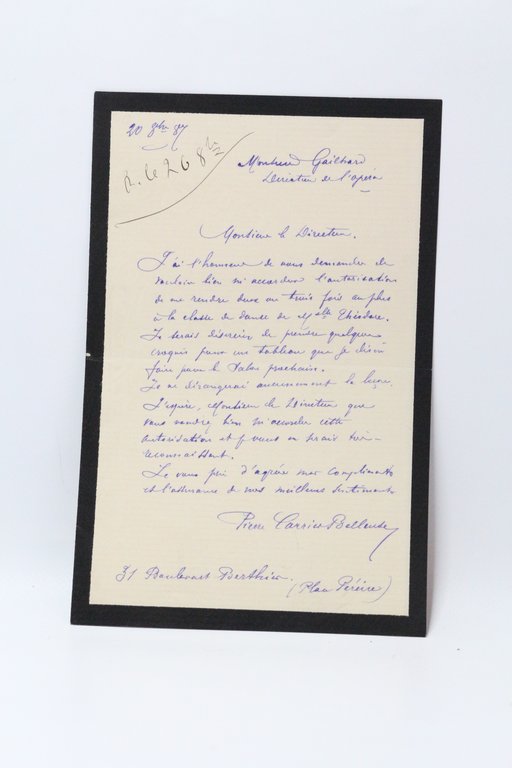 20 8bre 87
R. le 26 8bre
Monsieur Gailhard
Directeur de l'opera
Monsieur le Directeur.
J'ai l'honneur de vous demander de
vouloir bien m'accorder l'autorisation
de me rendre deux ou trois fois au plus
à la classe de danse de Melle Théodore.
Je serais désireux de prendre quelques
croquis pour un tableau que je désire
faire pour le Salon prochain.
Je ne dérangerai aucunement la leçon.
J'espère, Monsieur le Directeur que
vous voudrez bien m'accorder cette
autorisation et je vous en serais très-
reconnaissant.
Je vous prie d'agréer mes compliments
et l'assurance de mes meilleurs sentiments
Pierre Carrier-Belleuse
31 Boulevart Berthier.
(Place Péreire)